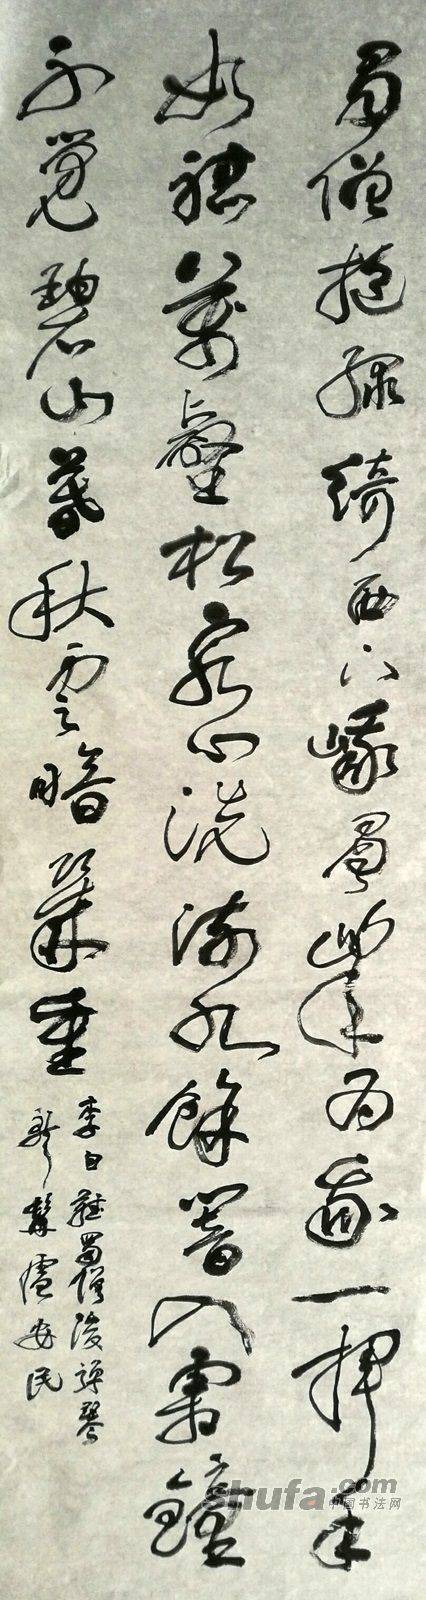 蜀僧抱綠綺西下峨眉峰为我一揮手
如聽萬壑松客心洗流水餘響入霜鐘
不覺碧山暮秋雲暗幾重
李白聽蜀僧濬彈琴
盧安民
shufa.com
中国书法网